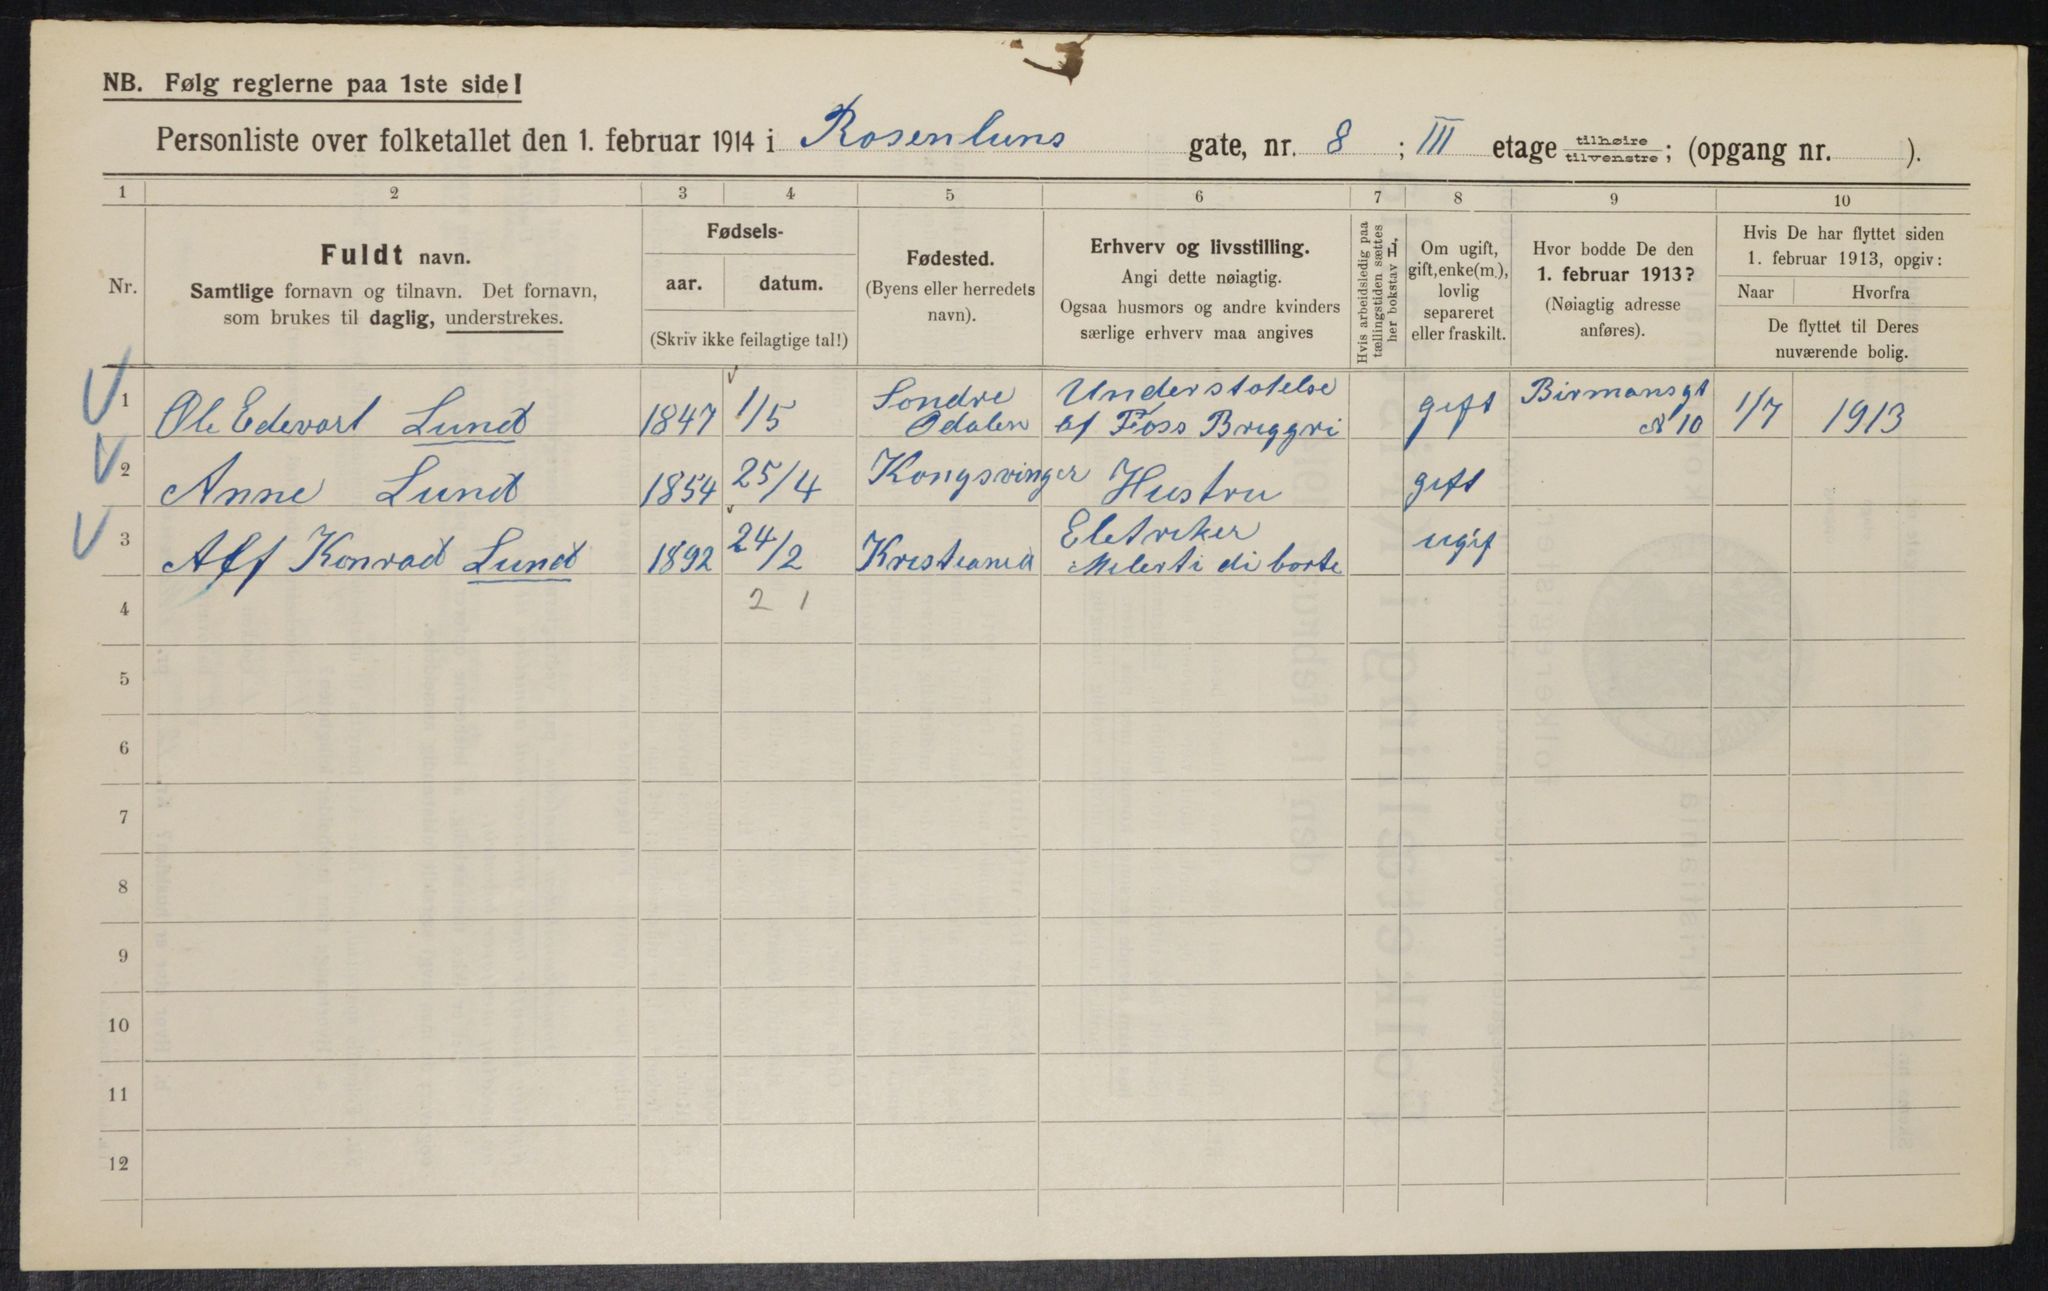 NB. Følg reglerne paa 1ste side!
Personliste over folketallet den 1. februar 1914 i Rosenluns gate, nr. 8 ; III etage tilhøire tilvenstre ; (opgang nr. ).
1 2 3 4 5 6 7 8 9 10
Nr.
Fuldt navn.
Samtlige fornavn og tilnavn. Det fornavn,
som brukes til daglig, understrekes.
Fødsels-
aar. datum.
(Skriv ikke feilagtige tal!)
Fødested.
(Byens eller herredets
navn).
Erhverv og livsstilling.
Angi dette nøiagtig.
Ogsaa husmors og andre kvinders
særlige erhverv maa angives
Hvis arbeidsledig paa
tællingstiden sættes
her bokstav L.
Om ugift,
gift, enke(m.),
lovlig
separeret
eller fraskilt.
Hvor bodde De den
1. februar 1913?
(Nøiagtig adresse
anføres).
Hvis De har flyttet siden
1. februar 1913, opgiv:
Naar Hvorfra
De flyttet til Deres
nuværende bolig.
1 Ole Edevart Lund 1847 1/5 Sondre Odalen Understotelse af Foss Briggri gift Birmansgt N 10 1/7 1913
2 Anne Lund 1854 25/4 Kongsvinger Hustru gift
3 Alf Konrad Lund 1892 24/2 Kristiania Eletriker Milerti di borte ugif
4 2 1
5
6
7
8
9
10
11
12